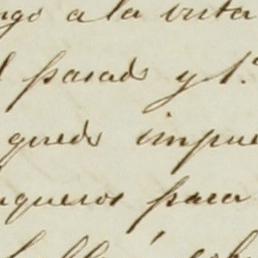 ngo a la vista
pasado y 1.º
quedo impue
queros para